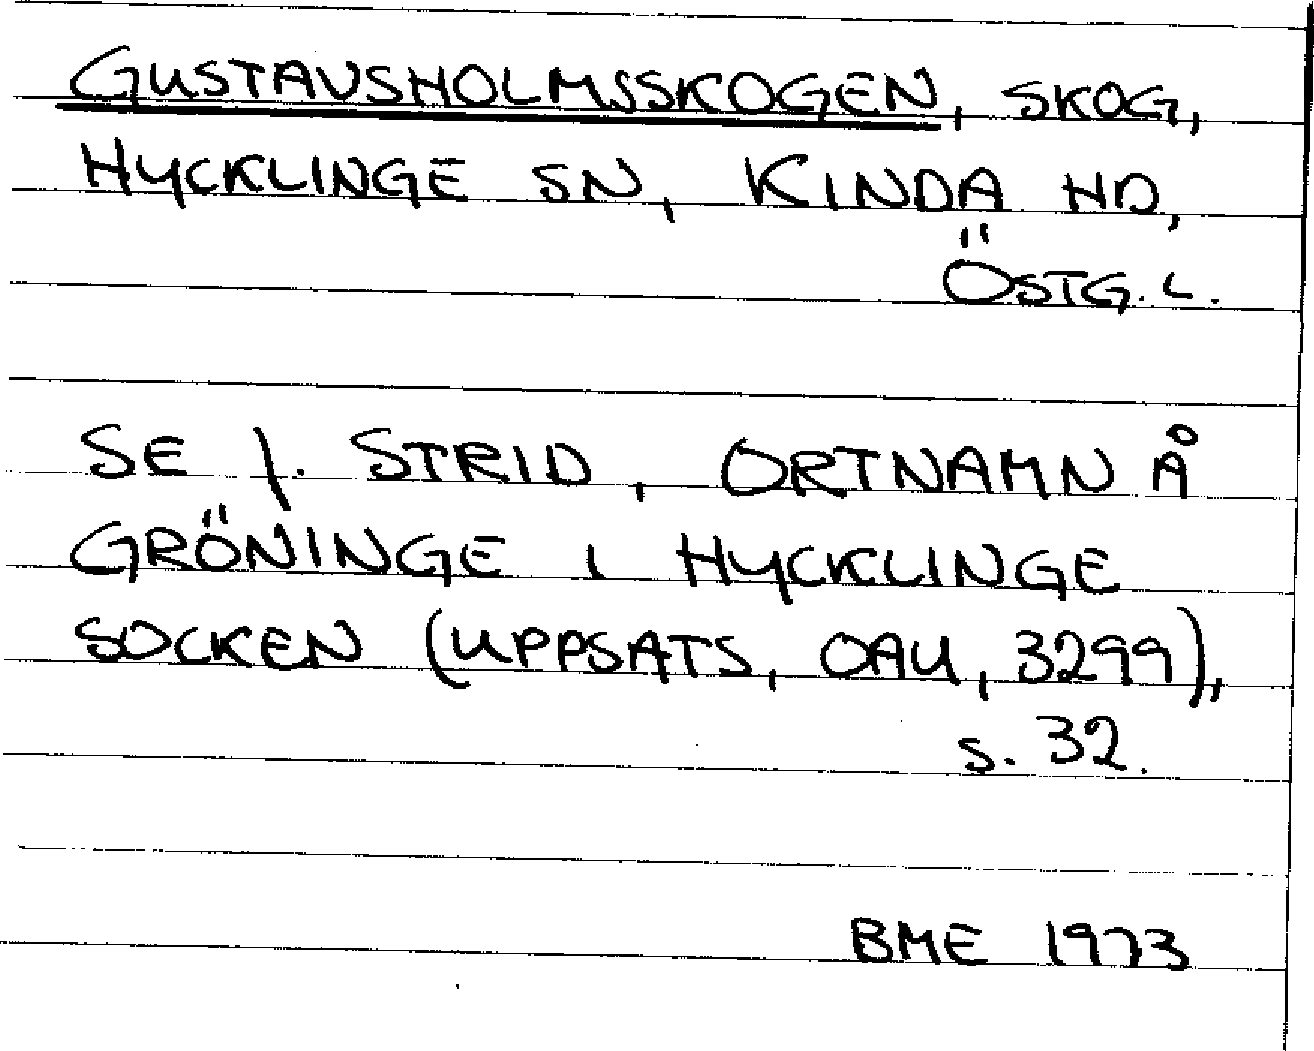 GUSTAVSHOLMSSKOGEN, SKOG,
HYCKLINGE SN, KINDA HD,
ÖSTG. L.
SE J. STRID, ORTNAMN Å
GRÖNINGE I HYCKLINGE
SOCKEN (UPPSATS, OAU, 3299),
s. 32.
BME 1973